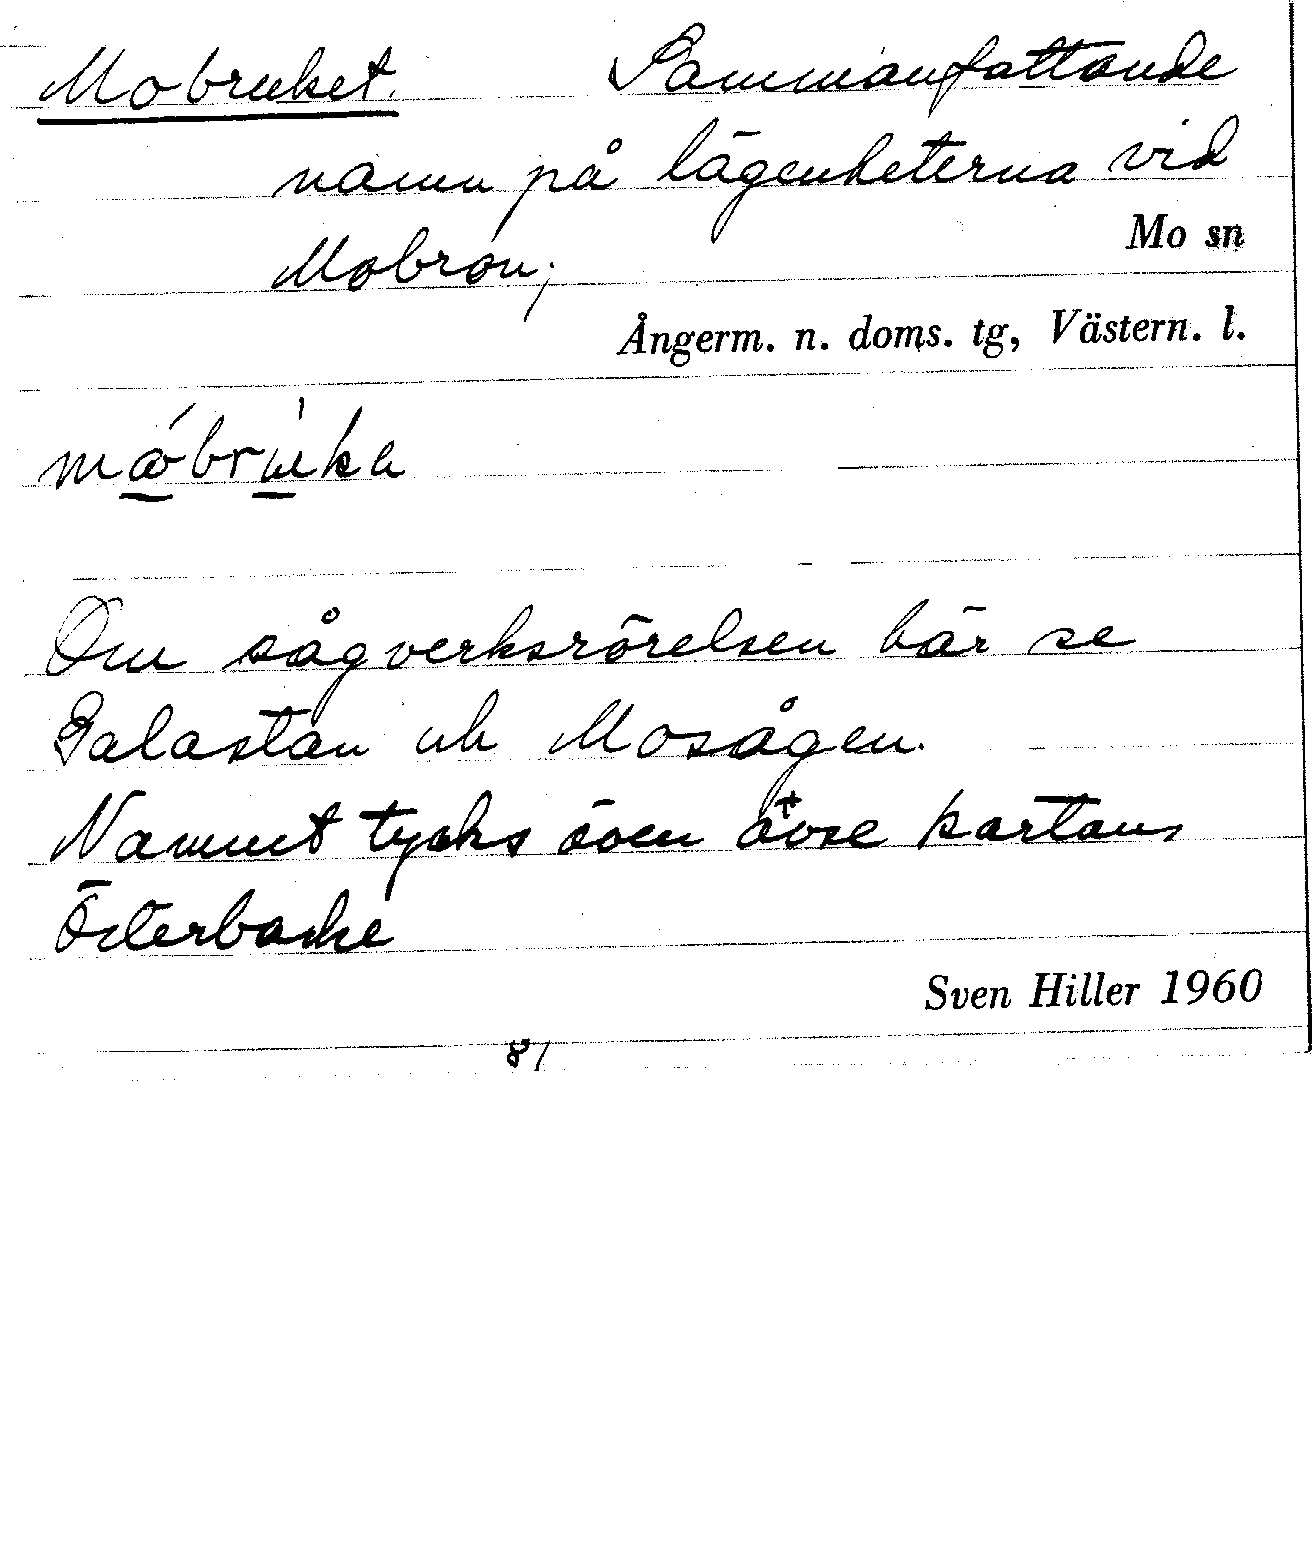 Mobruket. Sammanfattande
namn på lägenheterna vid
Mobron;
Mo sn
Ångerm. n. doms. tg, Västern. l.
Om sågverksrörelsen här se
Balastån och Mosågen.
Namnet tycks även avse kartans
Österbacke
Sven Hiller 1960
81